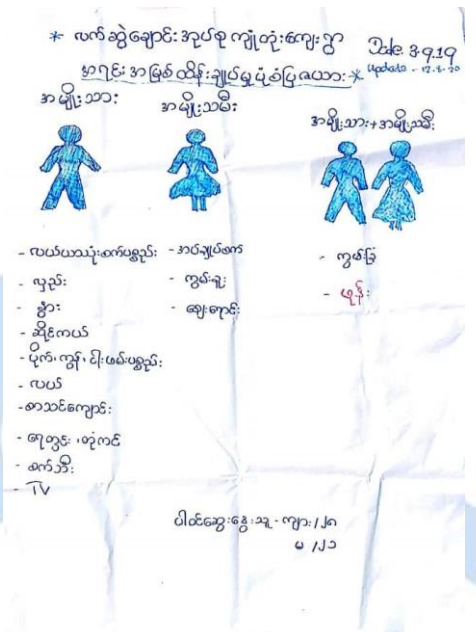 * လက်ဆွဲချောင်းအုပ်စု ကျုံတုံးကျေးရွာ
Date. 3.9.19
အရင်းအမြစ်ထိန်းချုပ်မှုပုံစံပြဇယား *
update - 12.2.20
အမျိုးသား
အမျိုးသမီး
အမျိုးသား + အမျိုးသမီး
- လယ်ယာသုံးစက်ပစ္စည်း
- လှည်း
- နွား
- ဆိုင်ကယ်
- ပိုက်၊ ကွန်၊ ငါးဖမ်းပစ္စည်း
- လယ်
- စာသင်ကျောင်း
- ရေတွင်း၊ တုံကင်
- စက်ဘီး
- TV
- အပ်ချုပ်စက်
- ကွမ်းယူ
- ဈေးရောင်း
- ကွမ်းခြံ
- ဖုန်း
ပါဝင်ဆွေးနွေးသူ - ကျား / ၂၈
မ / ၂၁